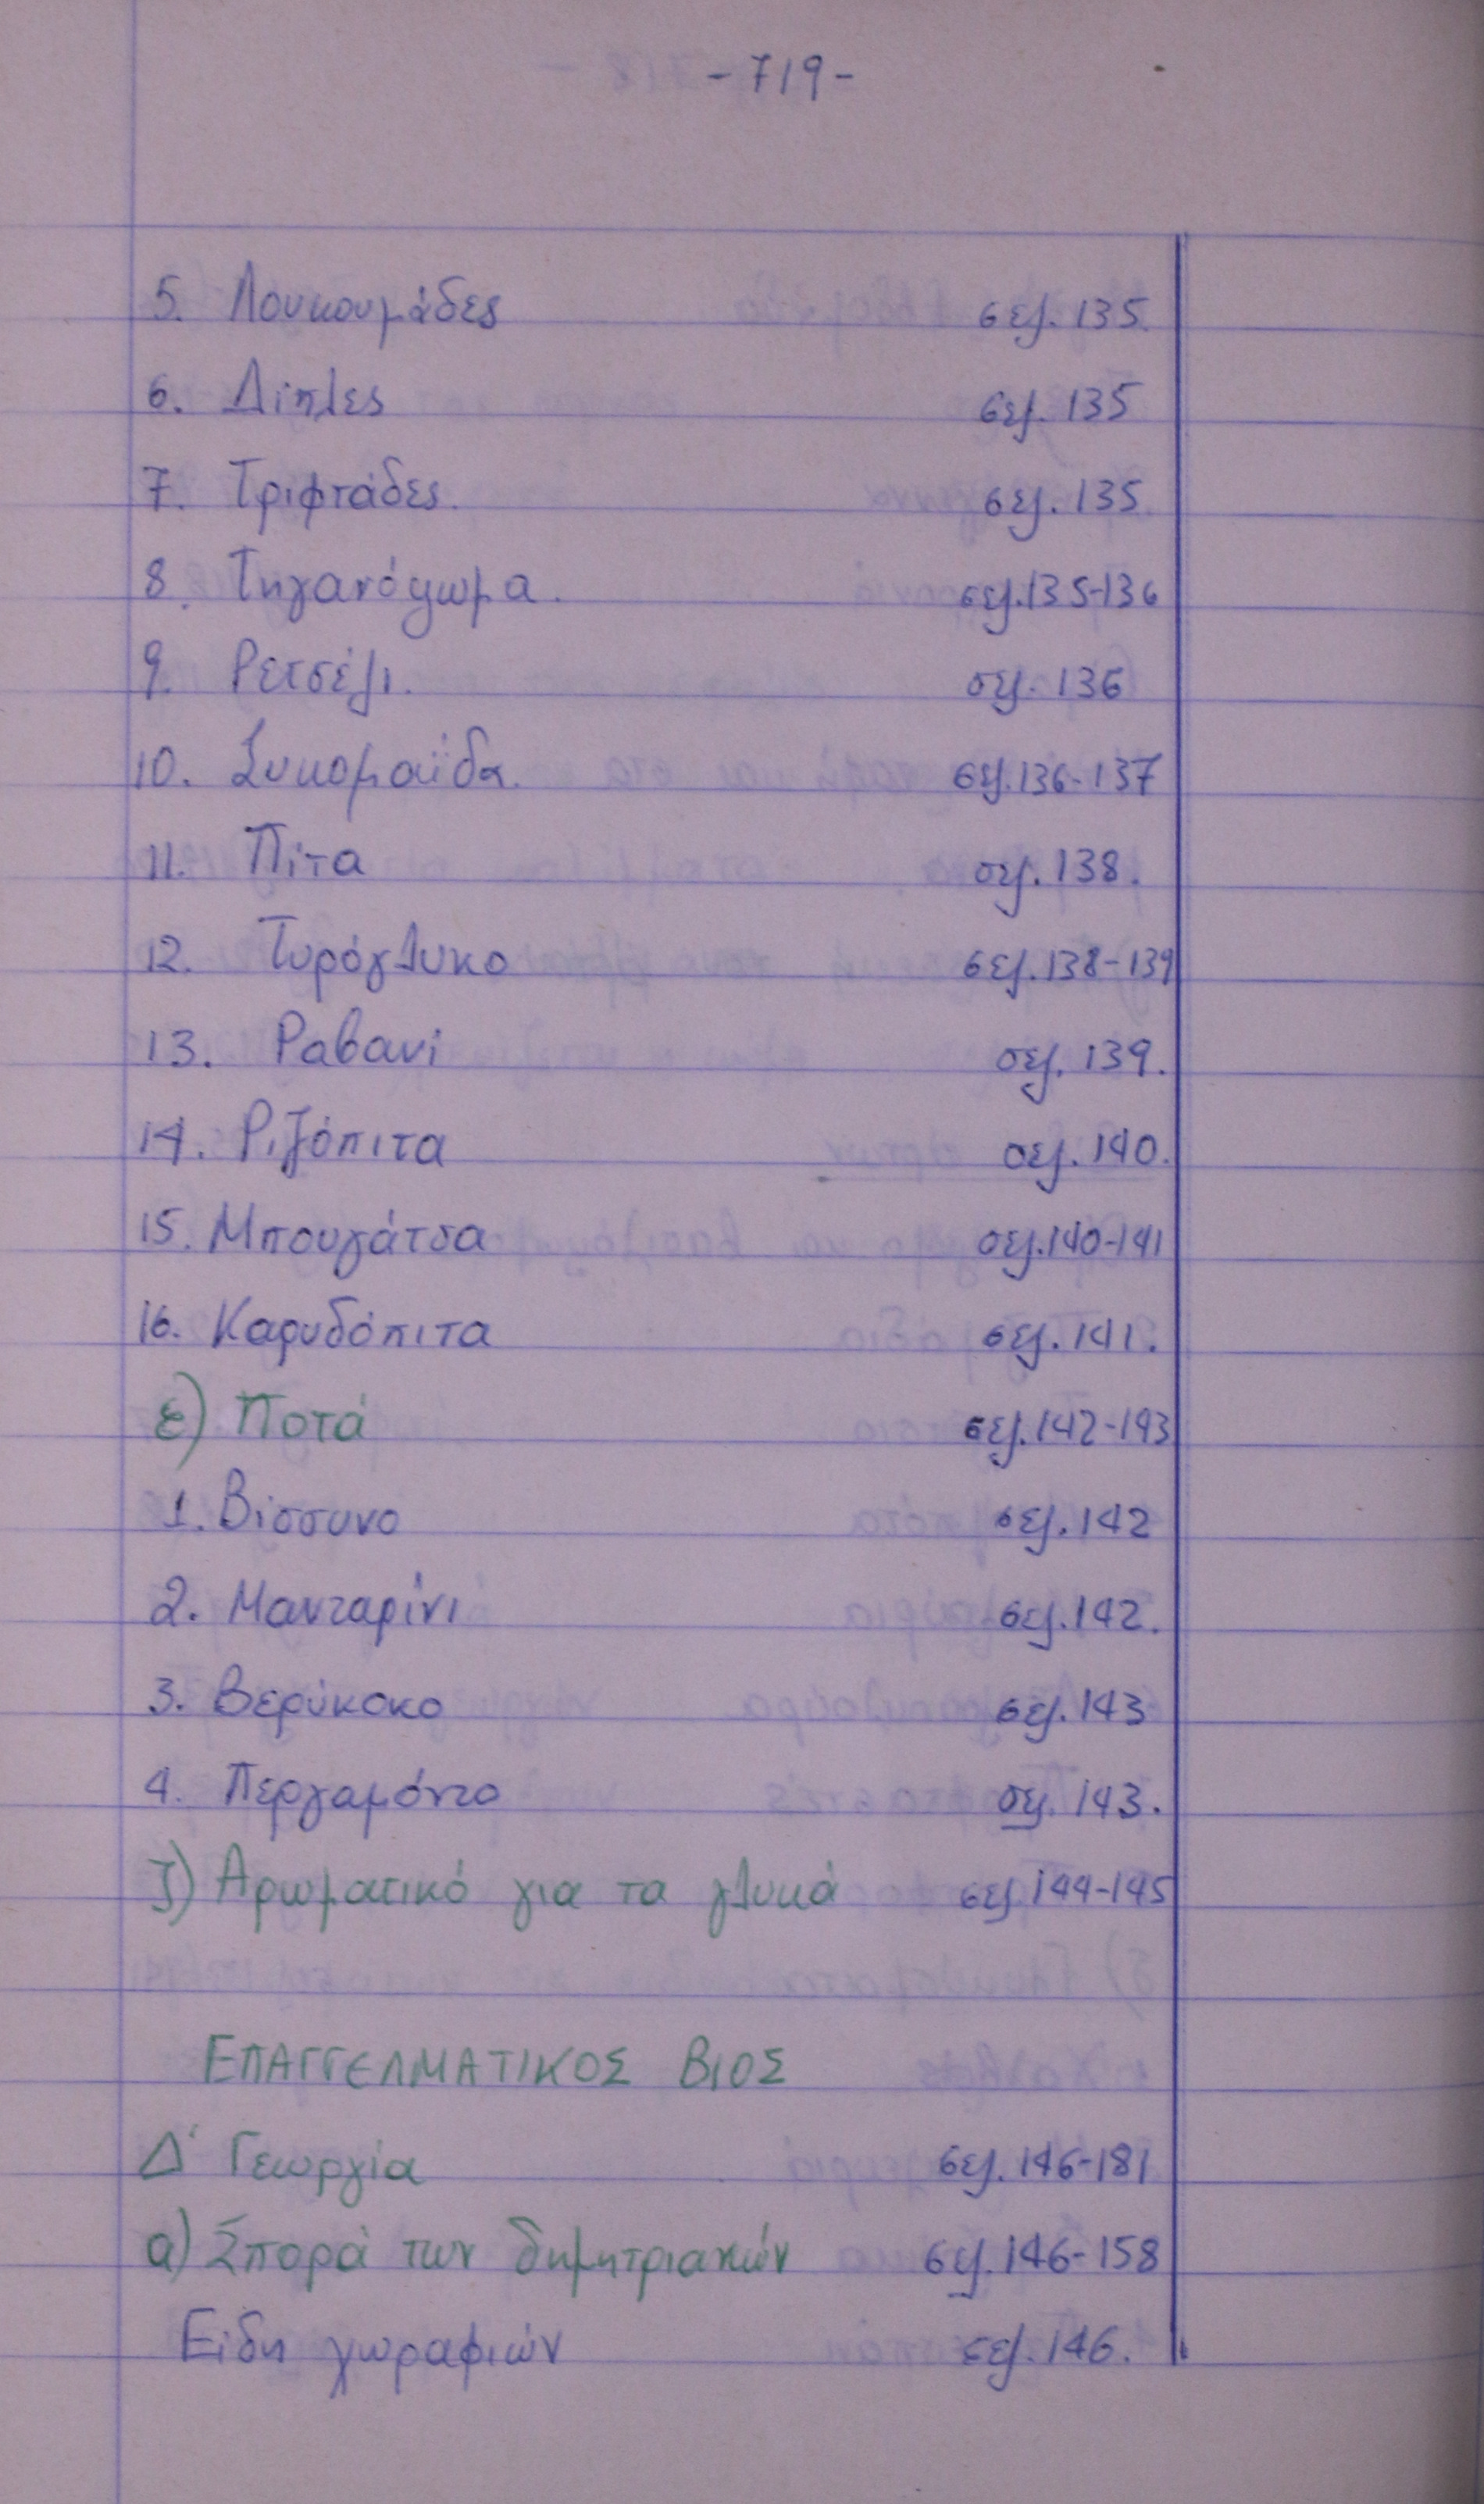 - 719 -
5. Λουκουμάδες σελ. 135.
6. Δίπλες σελ. 135
7. Τριφτάδες. σελ. 135
8. Τηγανόψωμα. σελ. 135-136
9. Ρετσέλι. σελ. 136
10. Συκομαϊδα. σελ. 136-137
11. Πίτα σελ. 138.
12. Τυρόγλυκο σελ. 138-139
13. Ραβανί σελ. 139.
14. Ριζόπιτα σελ. 140.
15. Μπουγάτσα σελ. 140-141
16. Καρυδόπιτα σελ. 141.
ε) Ποτά σελ. 142-143
1. Βίσσυνο σελ. 142
2. Μανταρίνι σελ. 142.
3. Βερύκοκο σελ. 143
4. Περγαμόντο σελ. 143.
ζ) Αρωματικό για τα γλυκά σελ. 144-145
ΕΠΑΓΓΕΛΜΑΤΙΚΟΣ ΒΙΟΣ
Δ' Γεωργία σελ. 146-181
α) Σπορά των δημητριακών σελ. 146-158
Είδη χωραφιών σελ. 146.